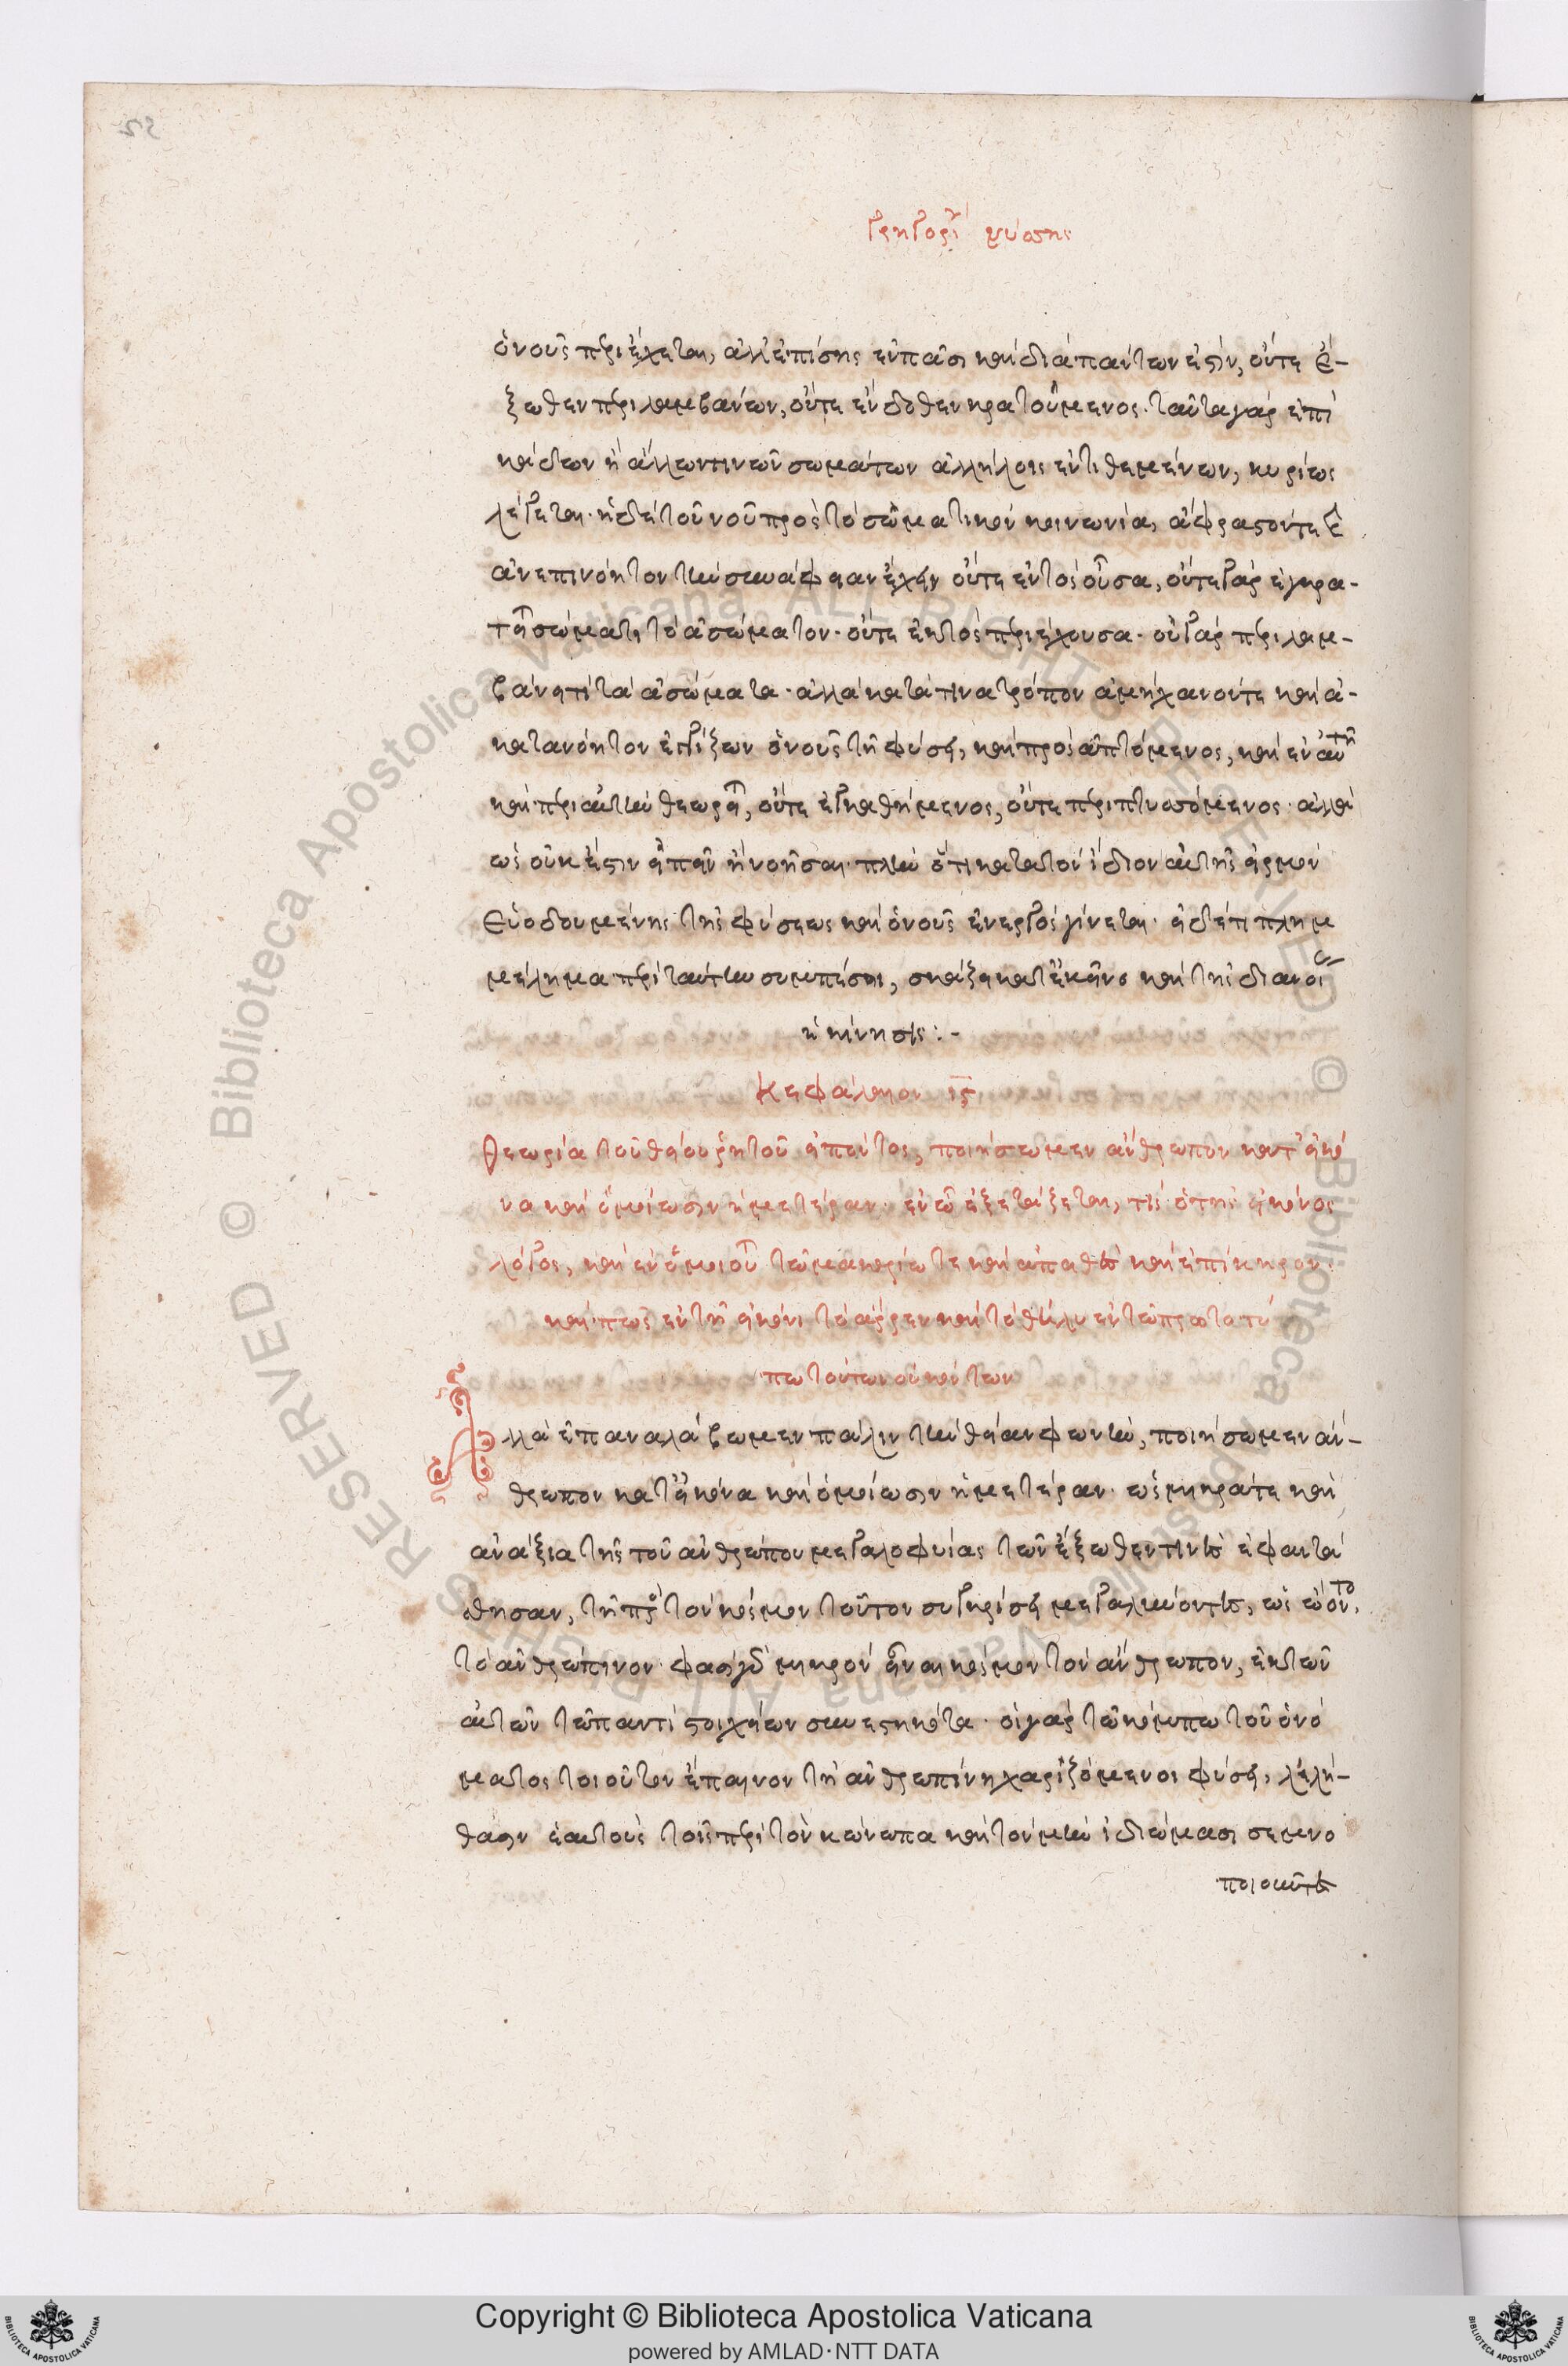 Γρηγορίου νύσσης
ὁ νοῦς περιέχεται, ἀλλ' ἐπίσης ἐν πᾶσι καὶ διὰ πάντων ἐστὶν, οὔτε ἔ-
ξωθεν περιλαμβάνων, οὔτε ἔνδοθεν κρατούμενος. ταῦτα γὰρ ἐπὶ
κάδων ἢ ἄλλων τινῶν σωμάτων ἀλλήλοις ἐντιθεμένων, κυρίως
λέγεται. ἡ δὲ τοῦ νοῦ πρὸς τὸ σωματικὸν κοινωνία, ἄφραστόν τε καὶ
ἀνεπινόητον τὴν συνάφειαν ἔχει οὔτε ἐντὸς οὖσα, οὔτε γὰρ ἐγκρα-
τεῖται σώματι τὸ ἀσώματον. οὔτε ἐκτὸς περιέχουσα. οὐ γὰρ περιλαμ-
βάνει τι τὰ ἀσώματα. ἀλλὰ κατά τινα τρόπον ἀμήχανόν τε καὶ ἀ-
κατανόητον ἐγγίζων ὁ νοῦς τῇ φύσει, καὶ προσαπτόμενος, καὶ ἐν αὐτῇ
καὶ περὶ αὐτὴν θεωρεῖται, οὔτε ἐγκαθήμενος, οὔτε περιπτυσσόμενος. ἀλλὰ
ὡς οὐκ ἔστιν εἰπεῖν ἢ νοῆσαι. πλὴν ὅτι κατὰ τὸν ἴδιον αὐτῆς εἱρμὸν
εὐοδουμένης τῆς φύσεως καὶ ὁ νοῦς ἐνεργὸς γίνεται. εἰ δέ τι πλημ
μέλημα περὶ ταύτην συμπέσοι, σκάζει κατ' ἐκεῖνο καὶ τῆς διανοίας
ἡ κίνησις:-
Κεφάλαιον ις
Θεωρία τοῦ θείου ῥητοῦ εἰπόντος, ποιήσωμεν ἄνθρωπον κατ' εἰκό
να καὶ ὁμοίωσιν ἡμετέραν. ἐν ᾧ ἐξετάζεται, τίς ὁ τῆς εἰκόνος
λόγος, καὶ εἰ ὁμοιοῦται τῷ μακαρίῳ τε καὶ ἀπαθεῖ καὶ ἐπίκηρον.
καὶ πῶς ἐν τῇ εἰκόνι τὸ ἄρρεν καὶ τὸ θῆλυ ἐν τῷ πρωτοτύ
πῳ τούτων οὐκ ὄντων
Ἀλλὰ ἐπαναλάβωμεν πάλιν τὴν θείαν φωνὴν, ποιήσωμεν ἄν-
θρωπον κατ' εἰκόνα καὶ ὁμοίωσιν ἡμετέραν. ὡς μικρά τε καὶ
ἀνάξια τῆς τοῦ ἀνθρώπου μεγαλοφυίας τῶν ἔξωθέν τινες ἐφαντά
σθησαν, τῇ πρὸς τὸν κόσμον τοῦτον συγκρίσει μεγαλύνοντες, ὡς ᾤοντο,
τὸ ἀνθρώπινον. φασὶ γὰρ μικρὸν εἶναι κόσμον τὸν ἄνθρωπον, ἐκ τῶν
αὐτῶν τῷ παντὶ στοιχείων συνεστηκότα. οἱ γὰρ τῷ κόμπῳ τοῦ ὀνό
ματος τοιοῦτον ἔπαινον τῇ ἀνθρωπίνῃ χαριζόμενοι φύσει, λελή-
θασιν ἑαυτοὺς τοῖς περὶ τὸν κώνωπα καὶ τὸν μῦν ἰδιώμασι σεμνο
ποιοῦντες
Copyright © Biblioteca Apostolica Vaticana
powered by AMLAD·NTT DATA